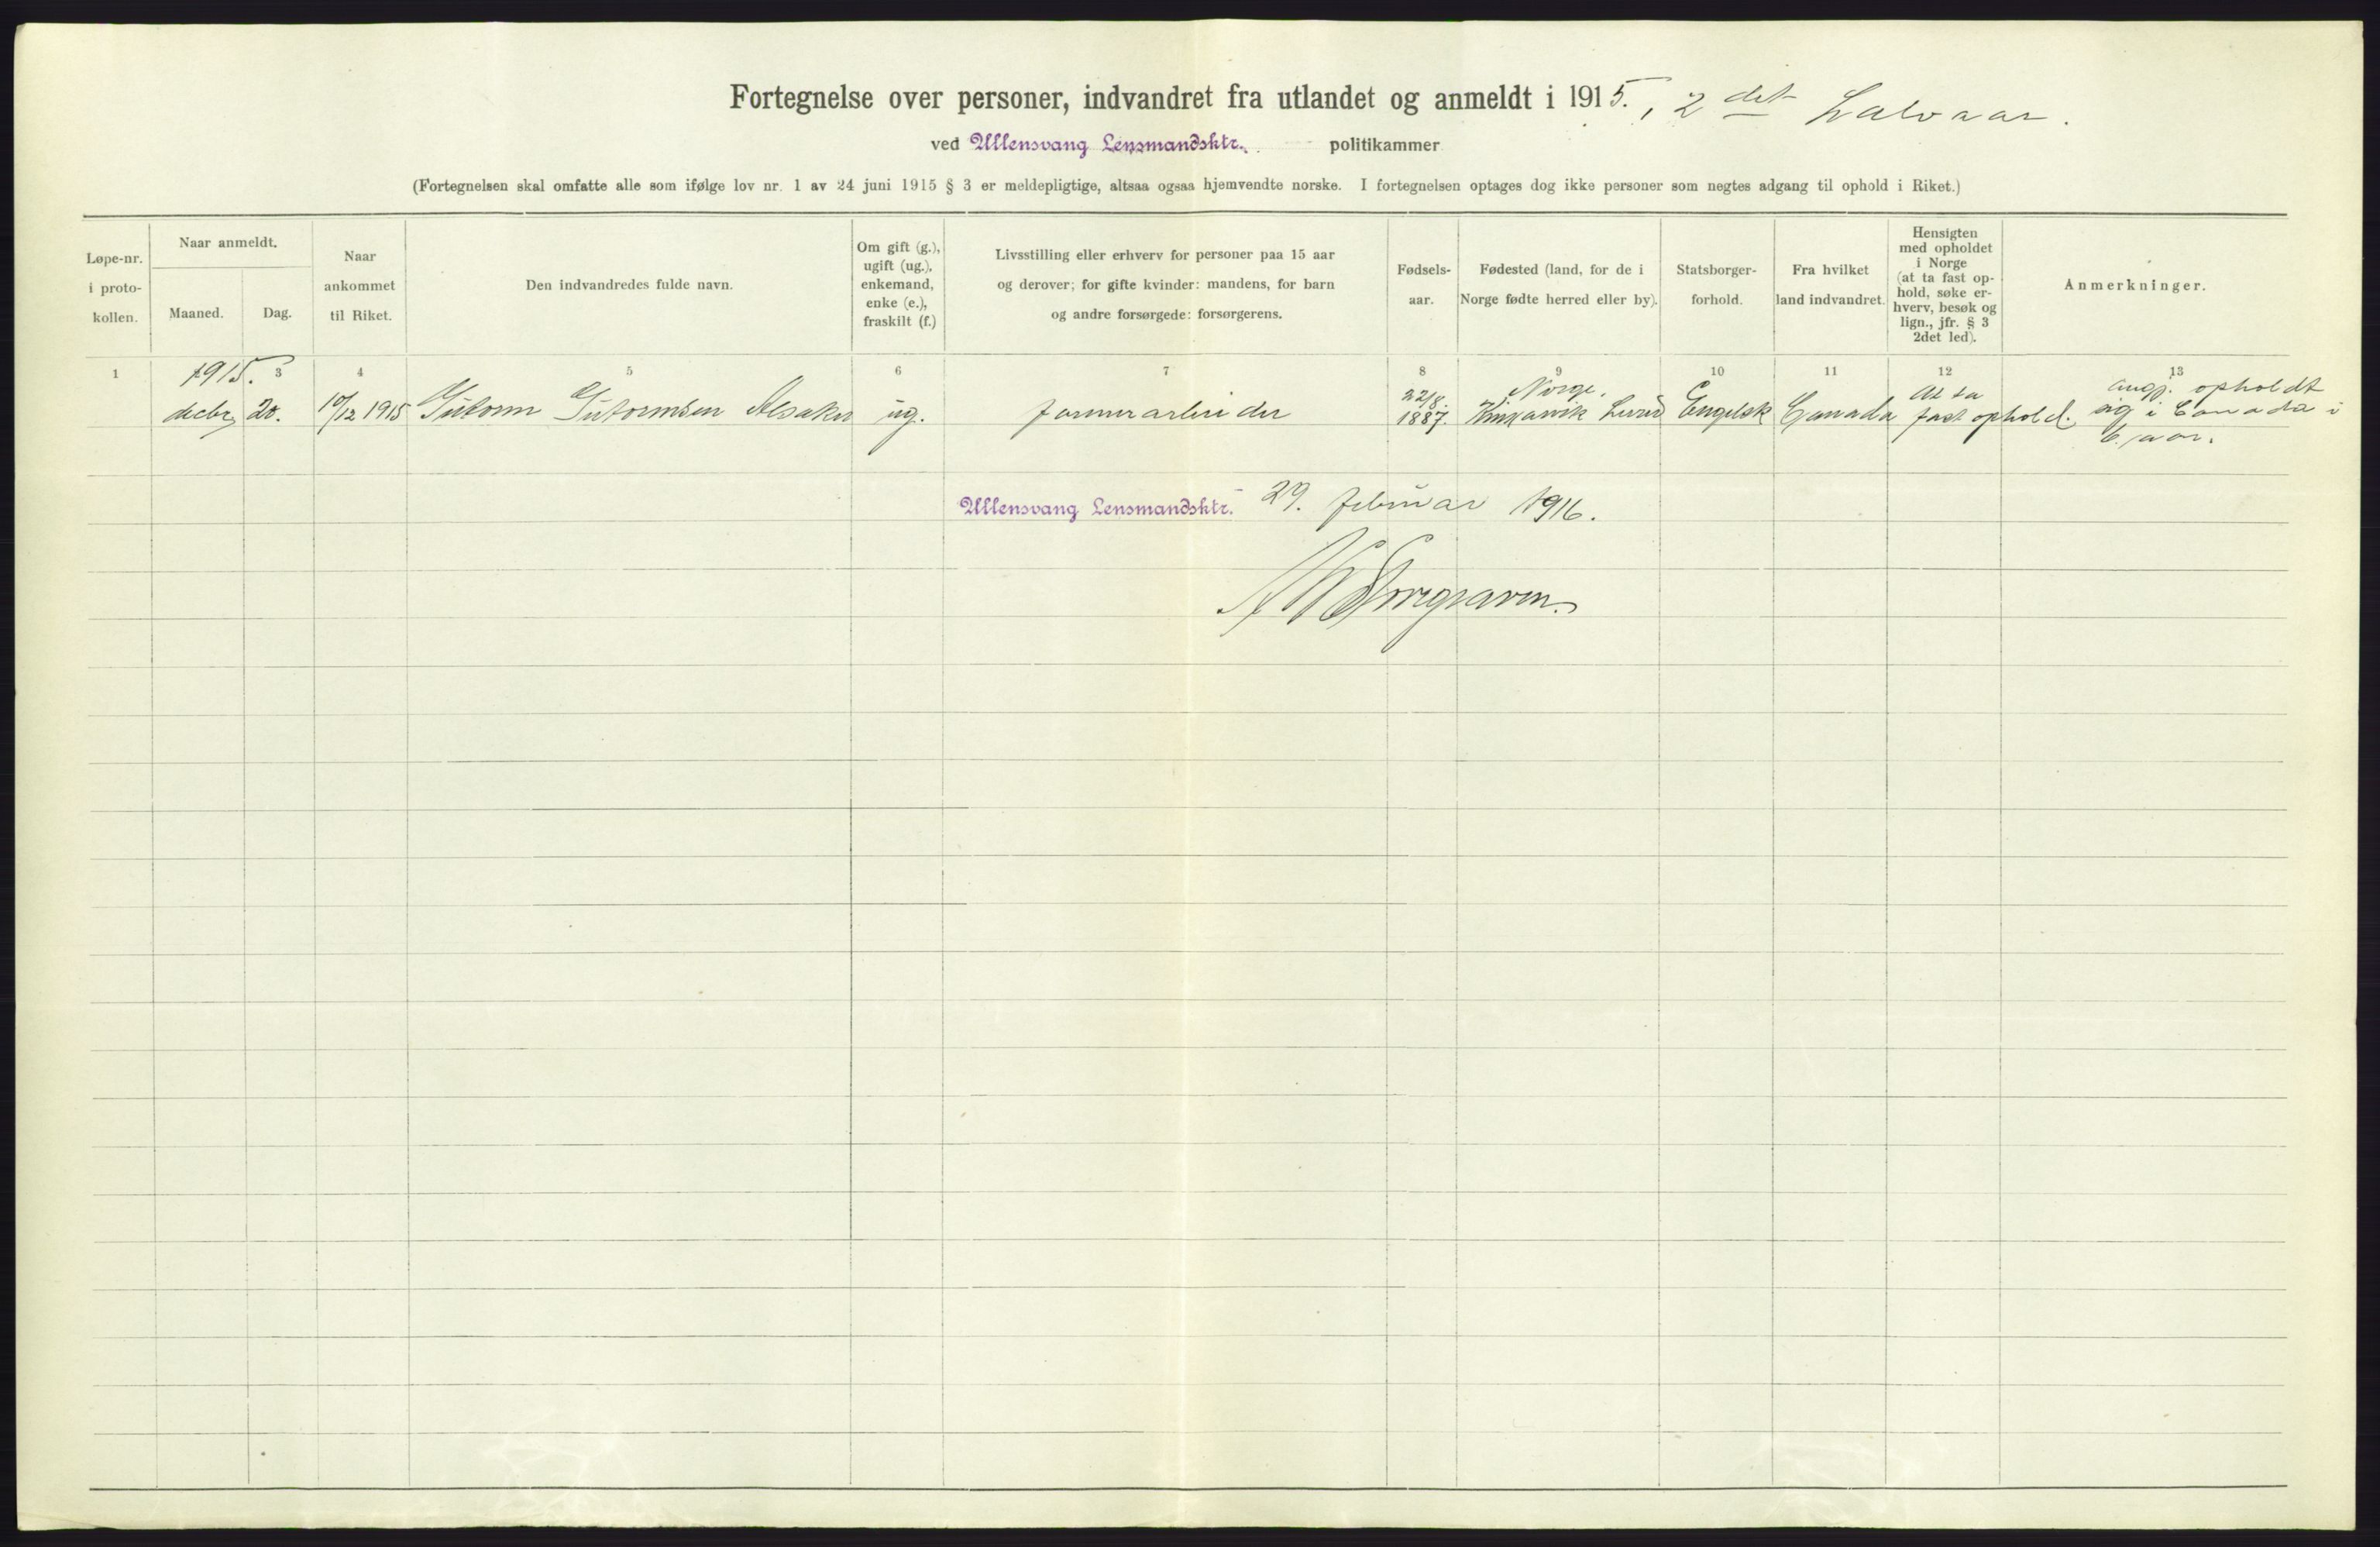 Fortegnelse over personer, indvandret fra utlandet og anmeldt i 1915., 2det Halvaar.
ved Ullensvang Lensmandsktr. politikammer
(Fortegnelsen skal omfatte alle som ifølge lov nr. 1 av 24 juni 1915 § 3 er meldepligtige, altsaa ogsaa hjemvendte norske. I fortegnelsen optages dog ikke personer som negtes adgang til ophold i Riket.)
Løpe-nr.
i proto-
kollen.
Naar anmeldt.
Maaned.
Dag.
Naar
ankommet
til Riket.
Den indvandredes fulde navn.
Om gift (g.),
ugift (ug.),
enkemand,
enke (e.),
fraskilt (f.)
Livsstilling eller erhverv for personer paa 15 aar
og derover; for gifte kvinder: mandens, for barn
og andre forsørgede: forsørgerens.
Fødsels-
aar.
Fødested (land, for de i
Norge fødte herred eller by).
Statsborger-
forhold.
Fra hvilket
land indvandret.
Hensigten
med opholdet
i Norge
(at ta fast op-
hold, søke er-
hverv, besøk og
lign., jfr. § 3
2det led).
Anmerkninger.
1 3 4 5 6 7 8 9 10 11 12 13
1915.
decbr. 20. 10/12 1915 Gutorm Gutormsen Alsaker ug. farmerarbeider
22/8.
1887.
Norge.
Kinsarvik
Engelsk Canada
At ta
fast ophold.
opholdt
sig i Canada i
6 aar.
Ullensvang Lensmandsktr. 29. februar 1916.